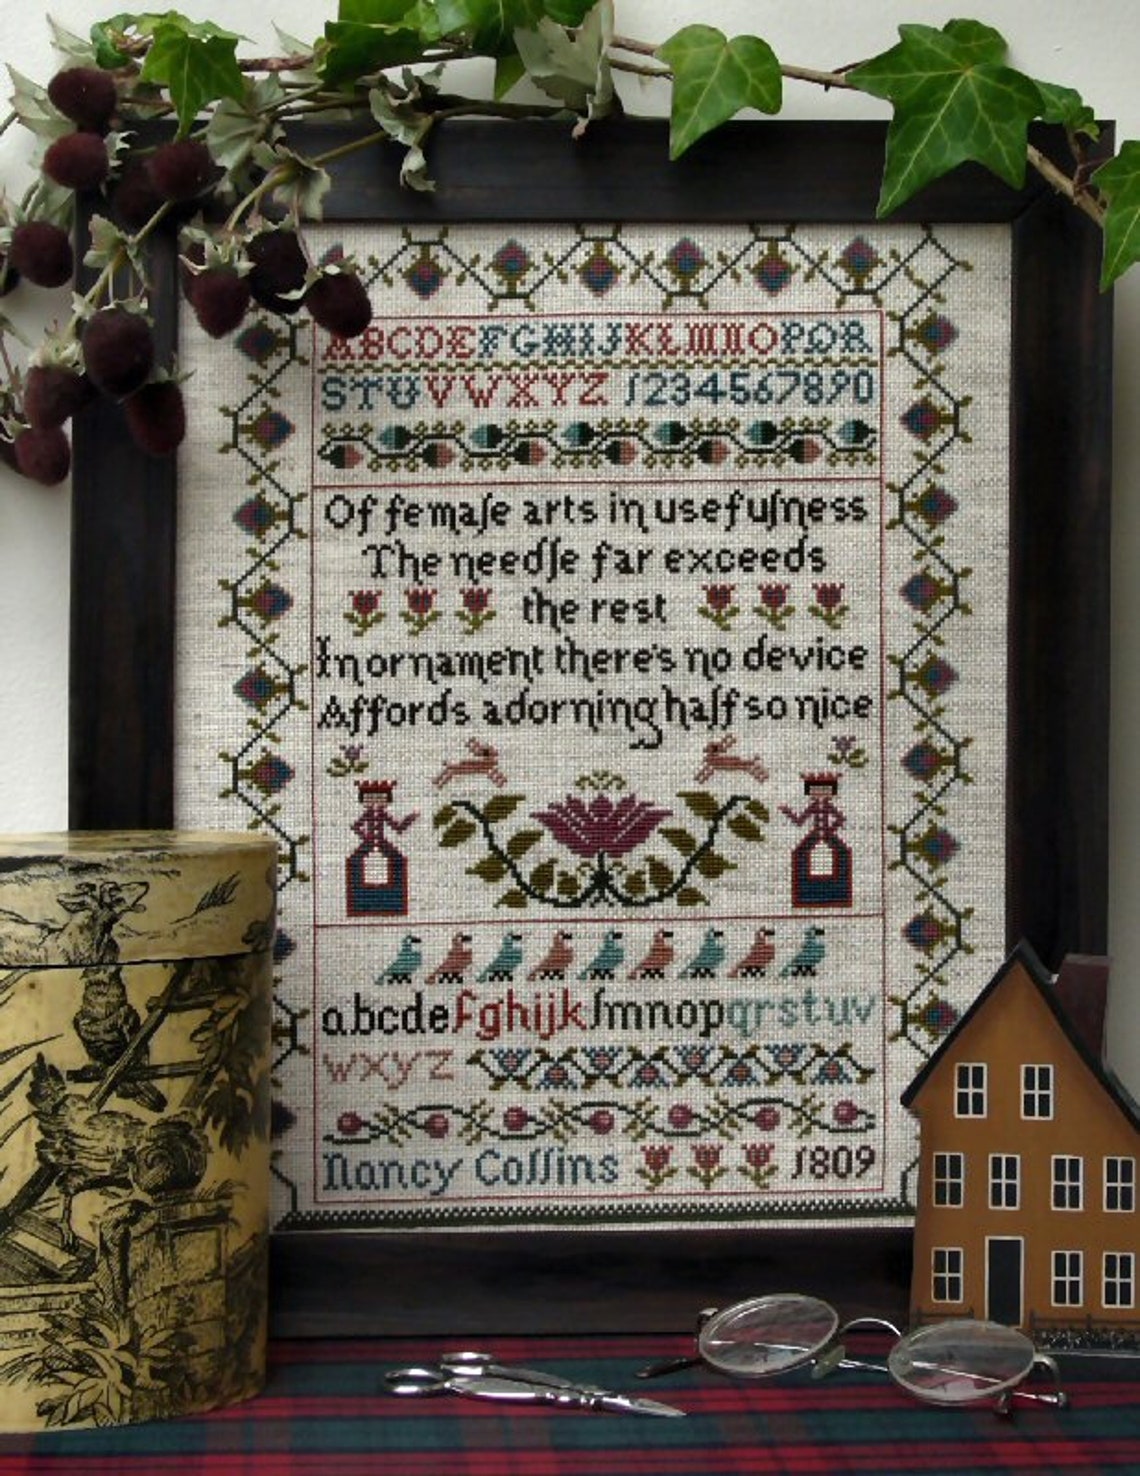 ABCDEFGHIJKLMNOPQR
STUVWXYZ 1234567890
Of female arts in usefulness
The needle far exceeds
the rest
In ornament there's no device
Affords adorning half so nice
abcdefghijklmnopqrstuv
wxyz
Nancy Collins 1809